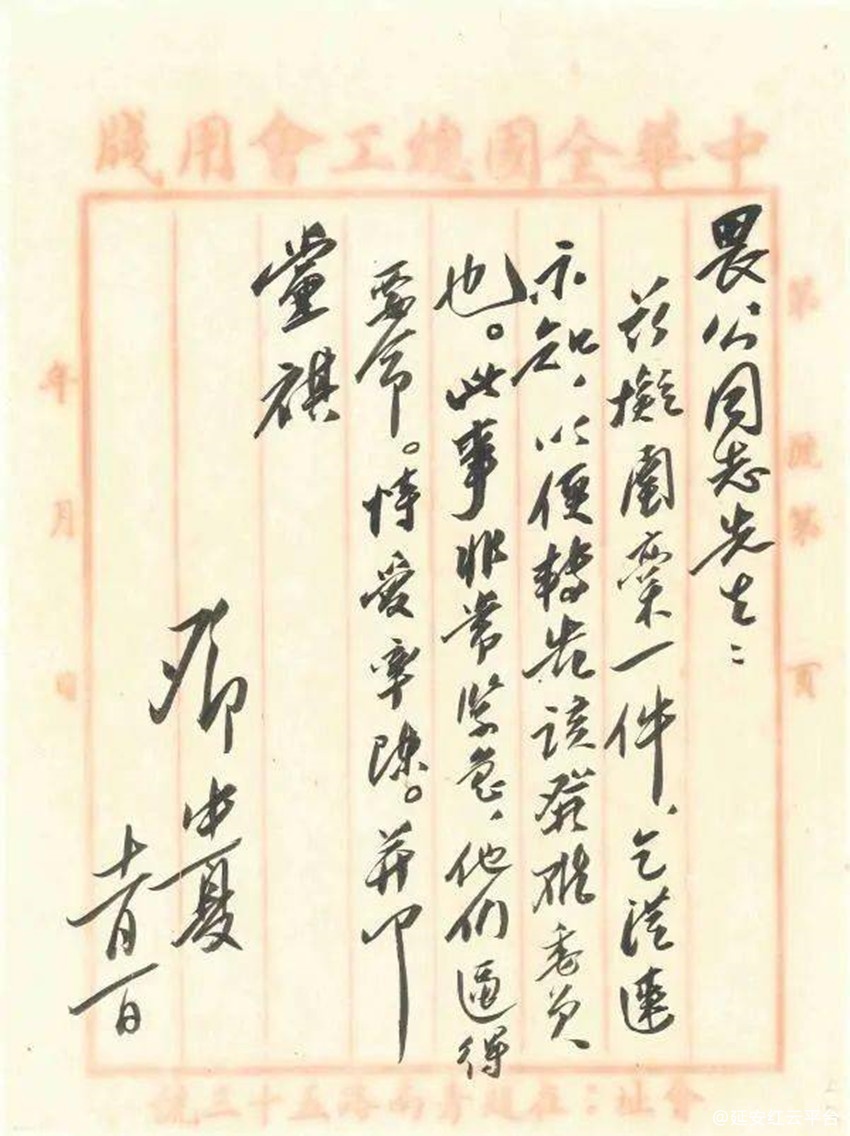 中華全國總工會用牋
第 號第 頁
畏公同志先生：
茲擬圖藁一件、乞從速
示知，以便轉告該委員
也。此事非常紧急，他们逼得
要命。恃爱率陳。并叩
黨祺
鄧中夏
十一月一日
年 月 日
會址：在越秀南路五十三號
@延安红云平台